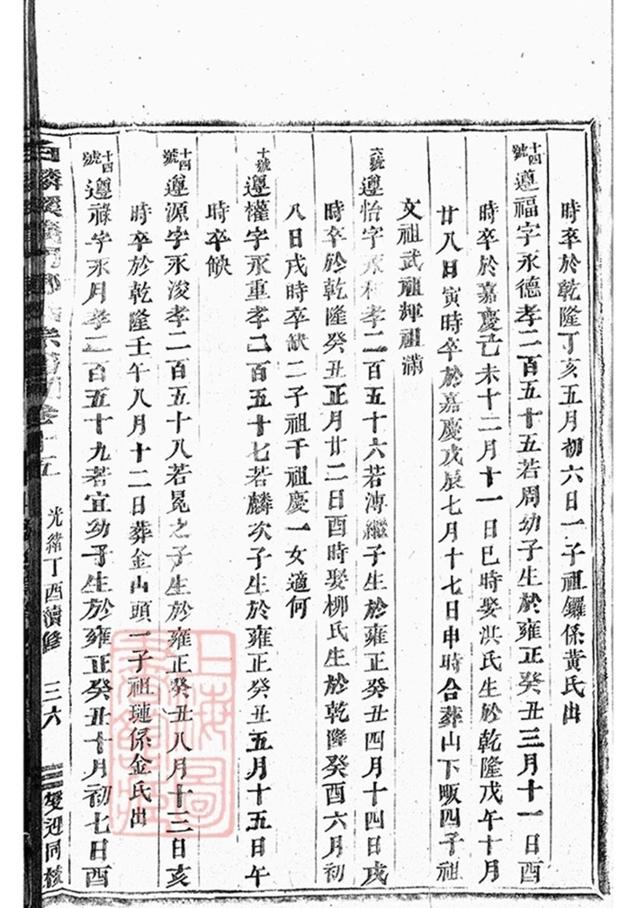 時卒於乾隆丁亥五月初六日一子祖鑼係黃氏出
十四號 遵福字永德孝二百五十五若周幼子生於雍正癸丑三月十一日酉
時卒於嘉慶己未十二月十一日巳時娶洪氏生於乾隆戊午十月
廿八日寅時卒於嘉慶戊辰七月十七日申時合葬山下畈四子祖
文祖武祖輝祖滿
六號 遵怡字永和孝二百五十六若溥繼子生於雍正癸丑四月十四日戌
時卒於乾隆癸丑正月廿二日酉時娶柳氏生於乾隆癸酉六月初
八日戌時卒缺二子祖千祖慶一女適何
十號 遵權字永重孝二百五十七若麟次子生於雍正癸丑五月十五日午
時卒缺
十四號 遵源字永浚孝二百五十八若冕之子生於雍正癸丑八月十三日亥
時卒於乾隆壬午八月十二日葬金山頭一子祖璉係金氏出
十四號 遵祿字永月孝二百五十九若宜幼子生於雍正癸丑十月初七日酉
卷十五 光緒丁酉續修 三六 愛迎同梭
上海圖